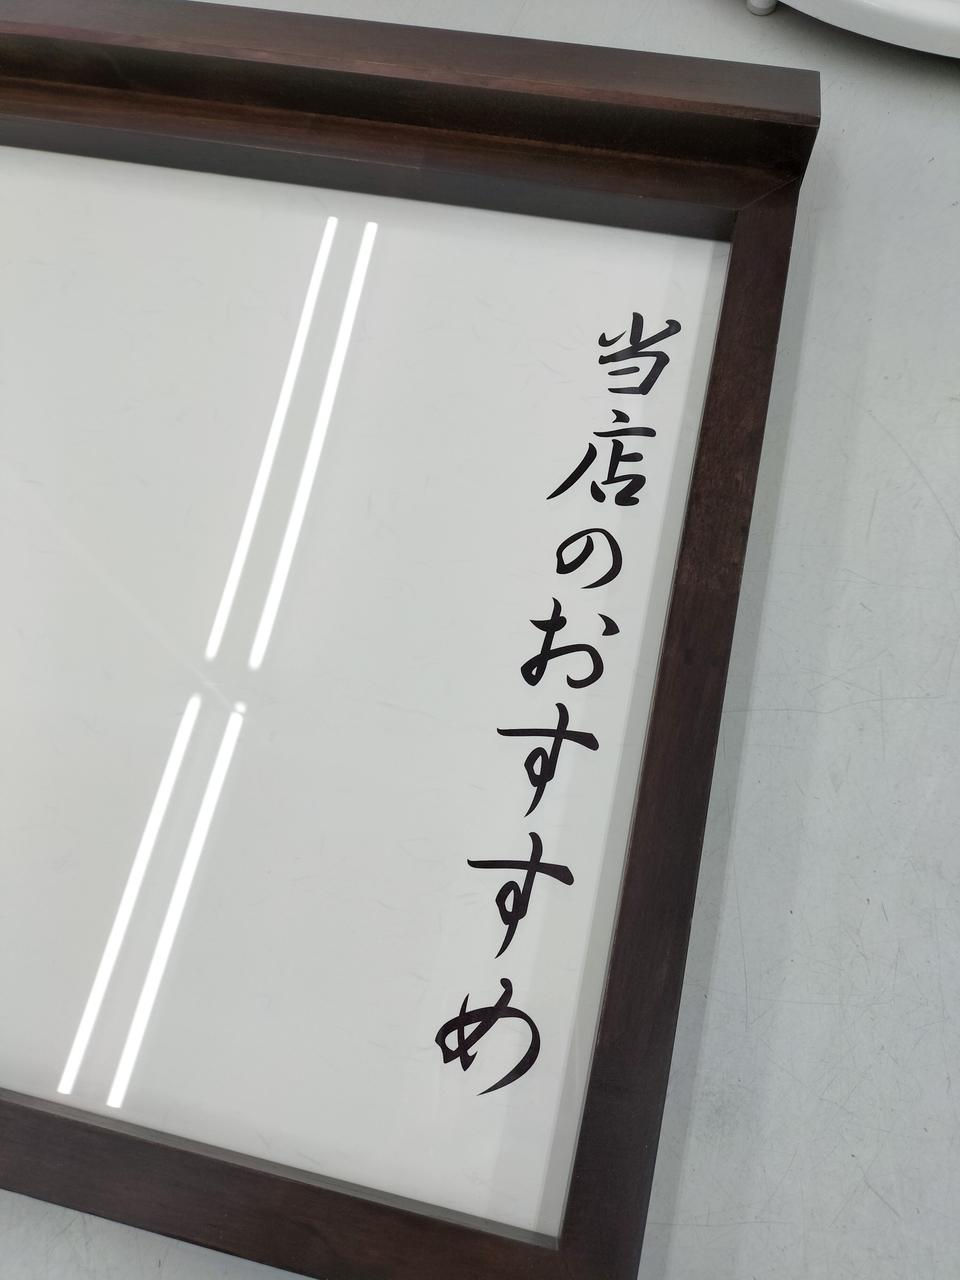 当店のおすすめ